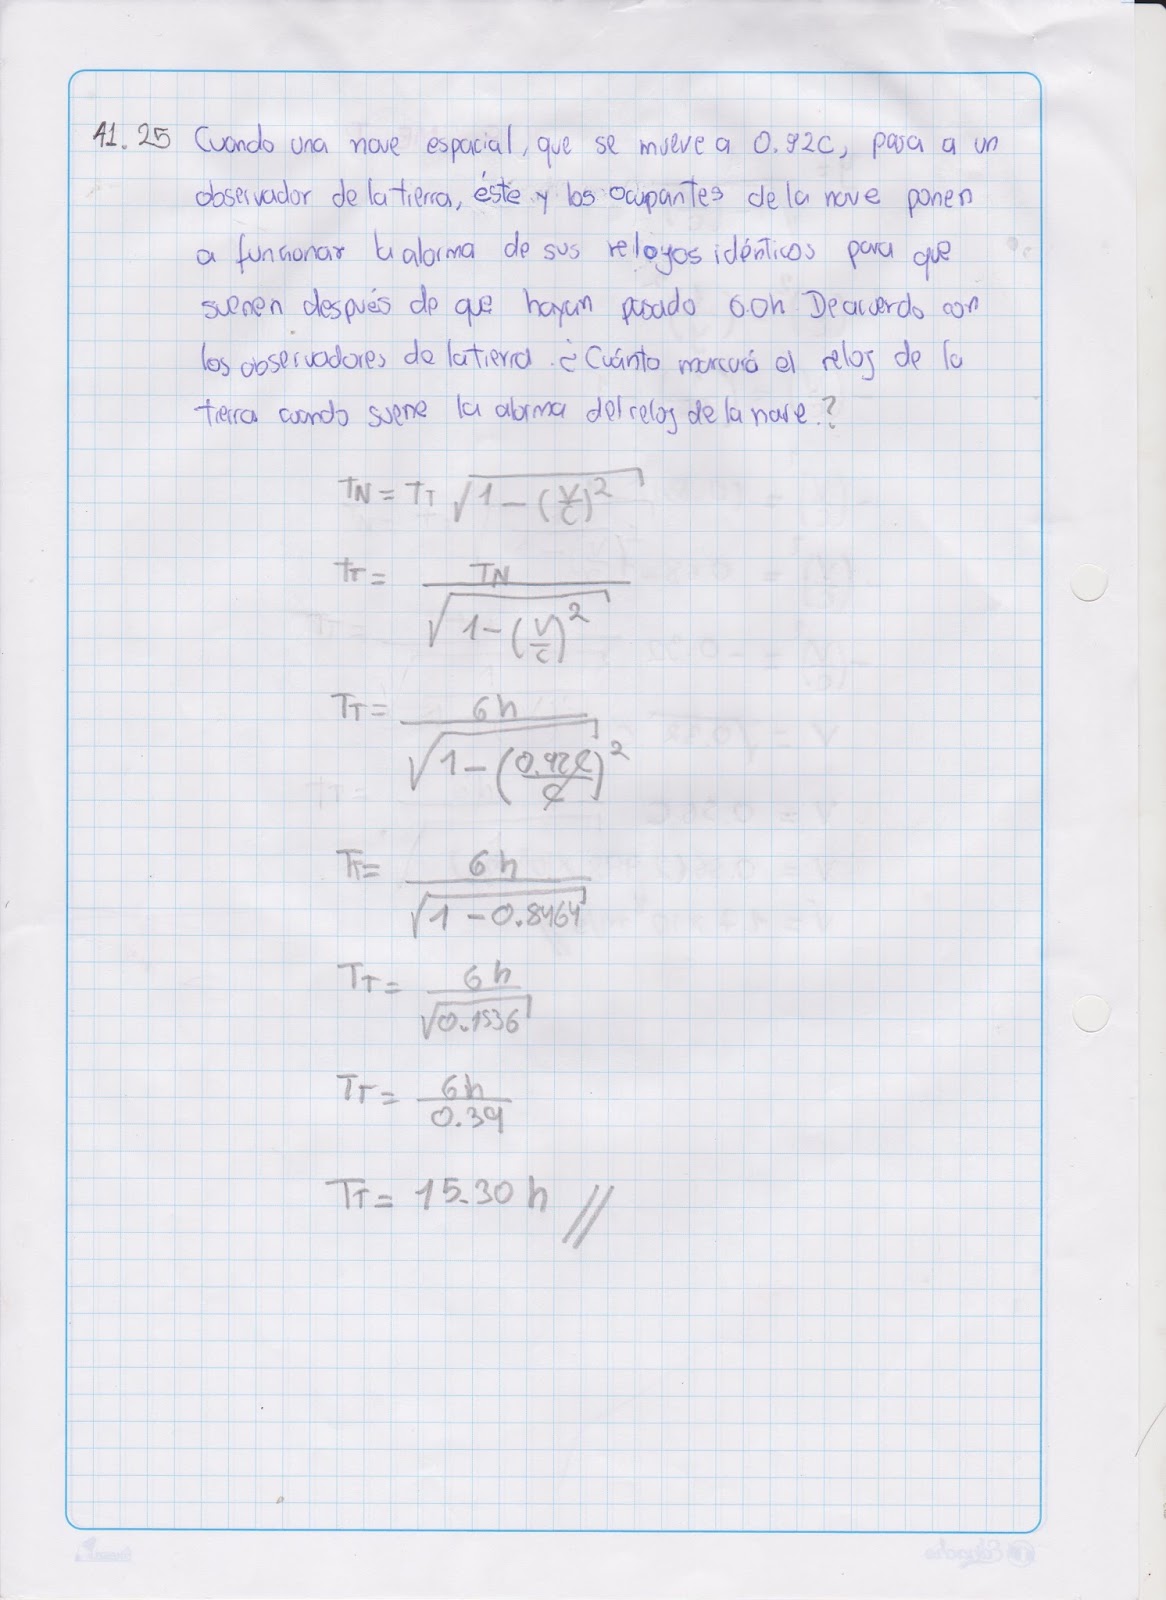 41.25 Cuando una nave espacial, que se mueve a 0.92C, pasa a un
observador de la tierra, éste y los ocupantes de la nave ponen
a funcionar la alarma de sus relojos idénticos para que
suenen después de que hayan pasado 6.0h. De acuerdo con
los observadores de la tierra. ¿Cuánto marcará el reloj de la
tierra cuando suene la alarma del reloj de la nave.?
TN = TT √1-(V/C)²
tT = TN / √1-(V/C)²
TT = 6h / √1-(0.92C/C)²
TT = 6h / √1-0.8464
TT = 6h / √0.1536
TT = 6h / 0.39
TT = 15.30 h //